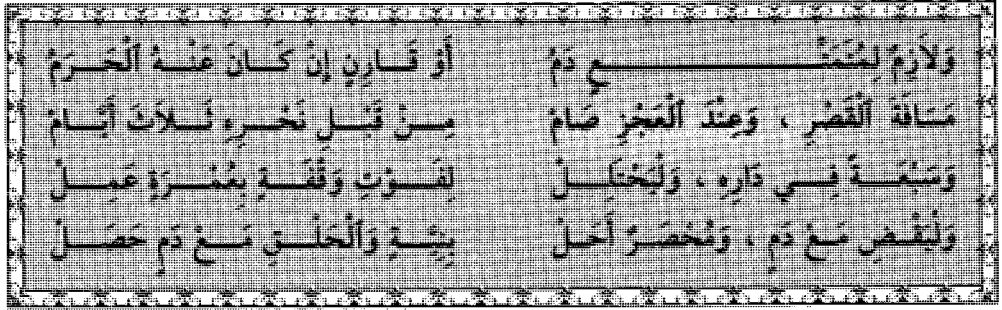 وَلاَزِمٌ لِمُتَمَتِّعٍ دَمُ أَوْ قَارِنٍ إِنْ كَانَ عَنْهُ ٱلْحَرَمُ
مَسَافَةَ ٱلْقَصْرِ ، وَعِنْدَ ٱلْعَجْزِ صَامْ مِنْ قَبْلِ نَحْرِهِ ثَلاَثَ أَيَّامْ
وَسَبْعَةً فِي دَارِهِ ، وَلْيَحْتَلِلْ لِفَوْتِ وَقْفَةٍ بِعُمْرَةٍ عَمِلْ
وَلْيَقْضِ مَعْ دَمٍ ، وَمُحْصَرٌ أَحَلْ بِنِيَّةٍ وَٱلْحَلْقِ مَعْ دَمٍ حَصَلْ